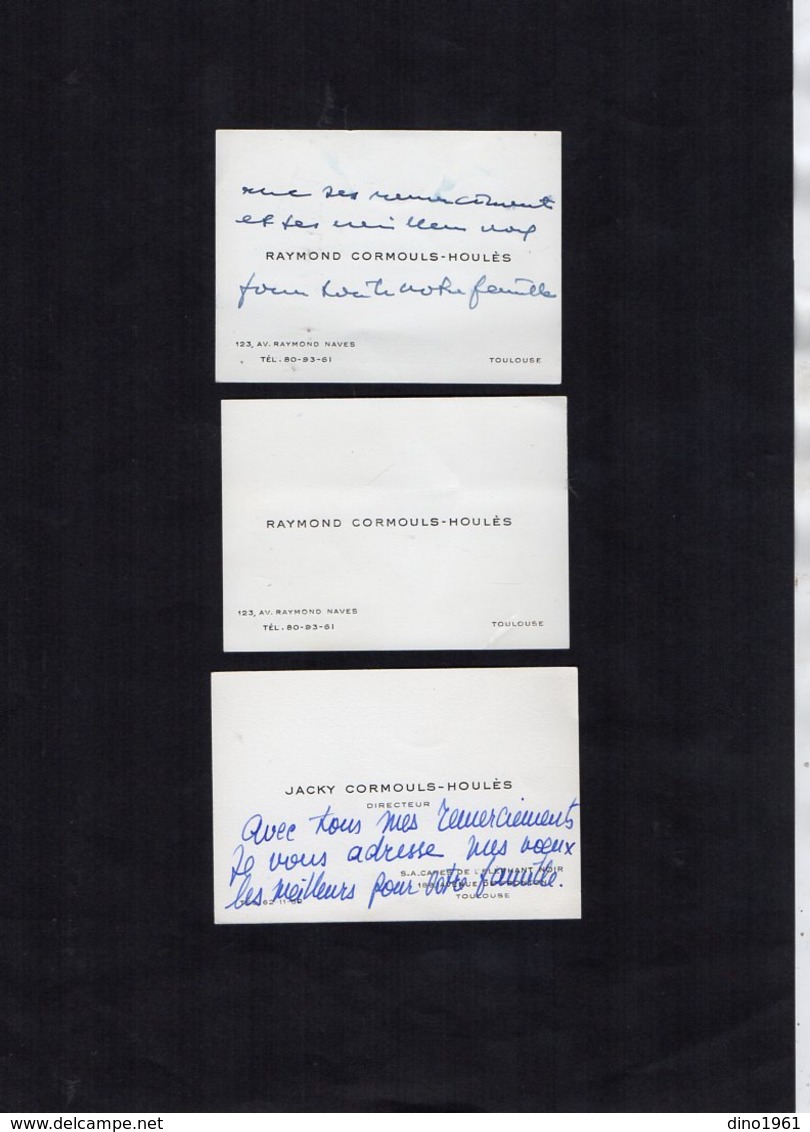 avec ses remerciements
et ses meilleurs vœux
RAYMOND CORMOULS-HOULÈS
pour toute votre famille
123, AV. RAYMOND NAVES
TÉL. 80-93-61 TOULOUSE
RAYMOND CORMOULS-HOULÈS
123, AV. RAYMOND NAVES
TÉL. 80-93-61 TOULOUSE
JACKY CORMOULS-HOULÈS
DIRECTEUR
Avec tous mes remerciements
Je vous adresse mes vœux
S.A. CAFES DE L'ELEPHANT NOIR
les meilleurs pour votre famille.
AVENUE
TOULOUSE
delcampe.net
dino1961